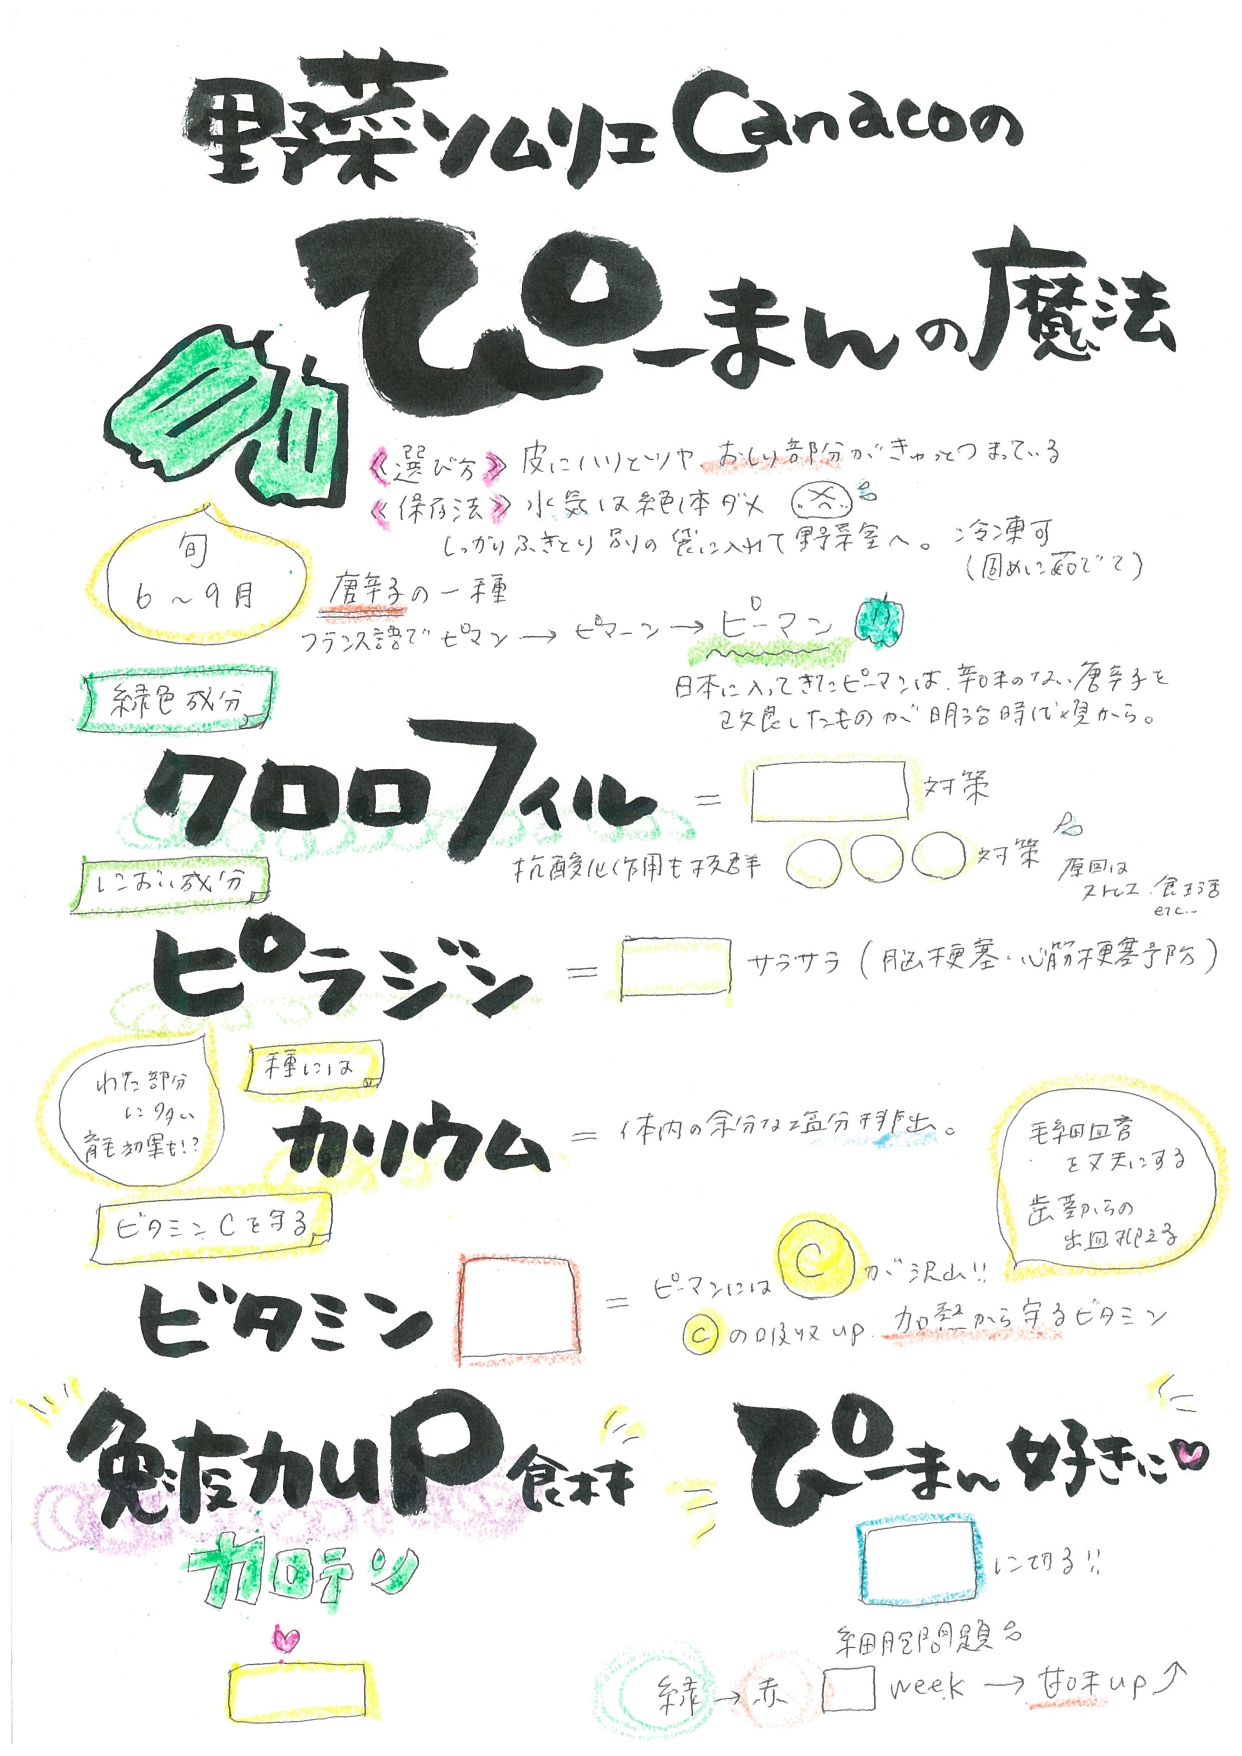 野菜ソムリエCanacoの
ぴーまんの魔法
《選び方》皮にハリとツヤ おしり部分がきゅっとつまっている
《保存法》水気は絶体ダメ
しっかりふきとり別の袋に入れて野菜室へ。冷凍可
(固めに茹でて)
旬
6〜9月
唐辛子の一種
フランス語でピマン→ピマーン→ピーマン
日本に入ってきたピーマンは、辛味のない唐辛子を
改良したものが明治時代頃から。
緑色成分
クロロフィル = 対策
抗酸化作用も抜群 ○○○対策
原因は
ストレス、食生活
etc..
におい成分
ピラジン = サラサラ(脳梗塞・心筋梗塞予防)
わた部分
に多い
育毛効果も!?
種には
カリウム = 体内の余分な塩分排出。
毛細血管
を丈夫にする
歯茎からの
出血抑える
ビタミンCを守る
ビタミン = ピーマンには C が沢山!!
Cの吸収up. 加熱から守るビタミン
免疫力up食材 = ぴーまん好きに
カロテン
に切る!!
細胞問題
緑→赤 week→甘味up↗